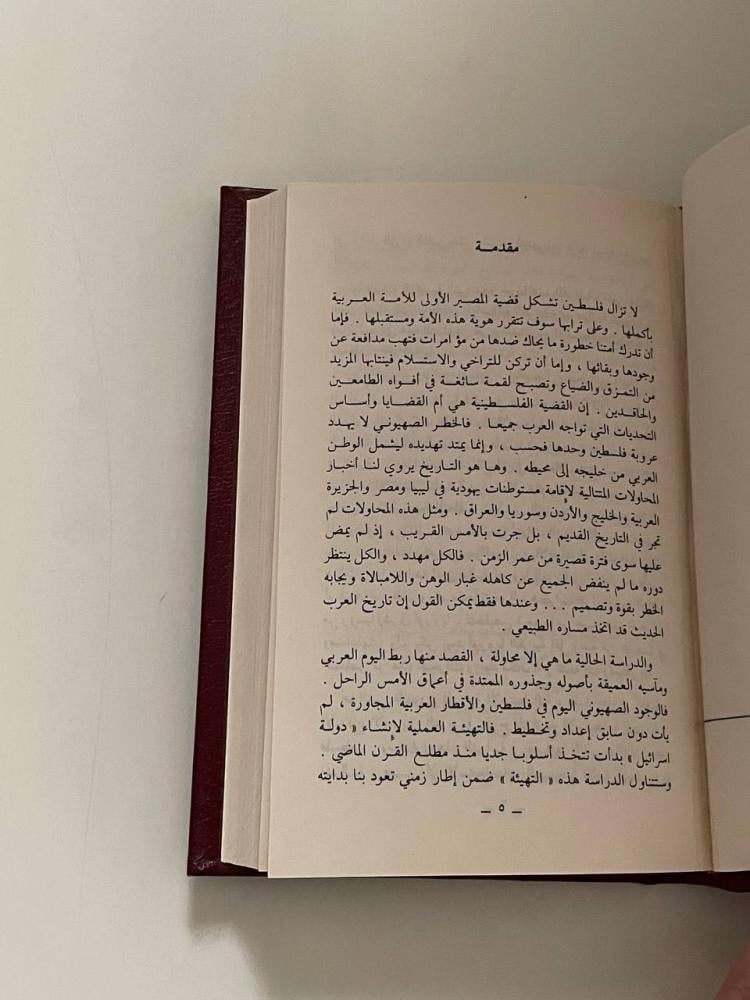 مقدمة
لا تزال فلسطين تشكل قضية المصير الأولى للأمة العربية
بأكملها . وعلى ترابها سوف تتقرر هوية هذه الأمة ومستقبلها . فإما
أن تدرك أمتنا خطورة ما يحاك ضدها من مؤامرات فتهب مدافعة عن
وجودها وبقائها ، وإما أن تركن للتراخي والاستسلام فينتابها المزيد
من التمزق والضياع وتصبح لقمة سائغة في أفواه الطامعين
والحاقدين . إن القضية الفلسطينية هي أم القضايا وأساس
التحديات التي تواجه العرب جميعا . فالخطر الصهيوني لا يهدد
عروبة فلسطين وحدها فحسب ، وإنما يمتد تهديده ليشمل الوطن
العربي من خليجه إلى محيطه . وها هو التاريخ يروي لنا أخبار
المحاولات المتتالية لإقامة مستوطنات يهودية في ليبيا ومصر والجزيرة
العربية والخليج والأردن وسوريا والعراق . ومثل هذه المحاولات لم
تجر في التاريخ القديم ، بل جرت بالأمس القريب ، إذ لم يمض
عليها سوى فترة قصيرة من عمر الزمن . فالكل مهدد ، والكل ينتظر
دوره ما لم ينفض الجميع عن كاهله غبار الوهن واللامبالاة ويجابه
الخطر بقوة وتصميم ... وعندها فقط يمكن القول إن تاريخ العرب
الحديث قد اتخذ مساره الطبيعي .
والدراسة الحالية ما هي إلا محاولة ، القصد منها ربط اليوم العربي
ومآسيه العميقة بأصوله وجذوره الممتدة في أعماق الأمس الراحل .
فالوجود الصهيوني اليوم في فلسطين والأقطار العربية المجاورة ، لم
يأت دون سابق إعداد وتخطيط . فالتهيئة العملية لإنشاء « دولة
اسرائيل » بدأت تتخذ أسلوبا جديا منذ مطلع القرن الماضي .
وستتناول الدراسة هذه « التهيئة » ضمن إطار زمني تعود بنا بدايته
— ٥ —